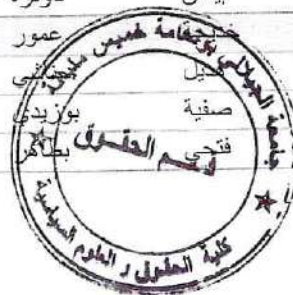 خديجة عمور
صفية بوزيدي
فتحي بطاهر
جامعة الجيلالي بونعامة خميس مليانة
قسم الحقوق
كلية الحقوق و العلوم السياسية